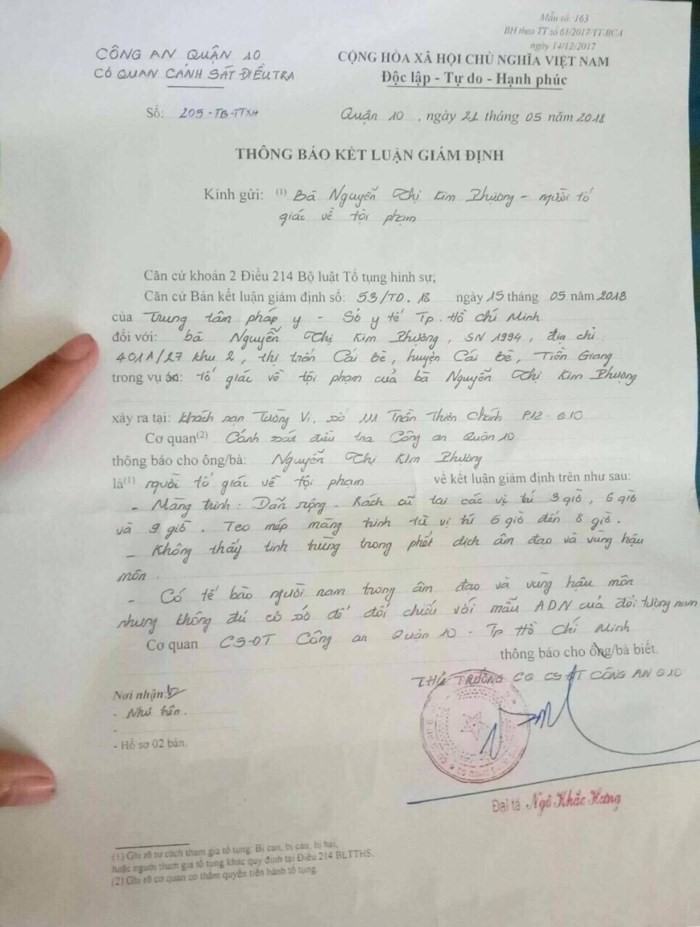 Mẫu số: 163
BH theo TT số 61/2017/TT-BCA
ngày 14/12/2017
CÔNG AN QUẬN 10
CƠ QUAN CẢNH SÁT ĐIỀU TRA
CỘNG HÒA XÃ HỘI CHỦ NGHĨA VIỆT NAM
Độc lập - Tự do - Hạnh phúc
Số: 205-TB-TTXH
Quận 10, ngày 21 tháng 05 năm 2018
THÔNG BÁO KẾT LUẬN GIÁM ĐỊNH
Kính gửi: (1) Bà Nguyễn Thị Kim Phượng - người tố
giác về tội phạm
Căn cứ khoản 2 Điều 214 Bộ luật Tố tụng hình sự;
Căn cứ Bản kết luận giám định số: 53/TD.B ngày 15 tháng 05 năm 2018
của Trung tâm pháp y - Sở y tế Tp. Hồ Chí Minh
đối với: bà Nguyễn Thị Kim Phượng, SN 1994, địa chỉ
401A/27 khu 2, thị trấn Cái Bè, huyện Cái Bè, Tiền Giang
trong vụ tố giác về tội phạm của bà Nguyễn Thị Kim Phượng
xảy ra tại: khách sạn Tường Vi, số 111 Trần Thiện Chánh P12 - Q10
Cơ quan(2) Cảnh sát điều tra Công an Quận 10
thông báo cho ông/bà: Nguyễn Thị Kim Phượng
là(1) người tố giác về tội phạm về kết luận giám định trên như sau:
- Màng trinh: Dãn rộng. Rách cũ tại các vị trí 3 giờ, 6 giờ
và 9 giờ. Teo mép màng trinh từ vị trí 6 giờ đến 8 giờ.
- Không thấy tinh trùng trong phết dịch âm đạo và vùng hậu
môn.
- Có tế bào người nam trong âm đạo và vùng hậu môn
nhưng không đủ cơ sở để đối chiếu với mẫu ADN của đối tượng nam
Cơ quan CS-ĐT Công an Quận 10 - Tp Hồ Chí Minh
thông báo cho ông/bà biết.
THỦ TRƯỞNG CQ CSĐT CÔNG AN Q10
Nơi nhận:
- Như trên.
- Hồ sơ 02 bản.
Đại tá Ngô Khắc
(1) Ghi rõ tư cách tham gia tố tụng: Bị can, bị cáo, bị hại,
hoặc người tham gia tố tụng khác quy định tại Điều 214 BLTTHS.
(2) Ghi rõ cơ quan có thẩm quyền tiến hành tố tụng.